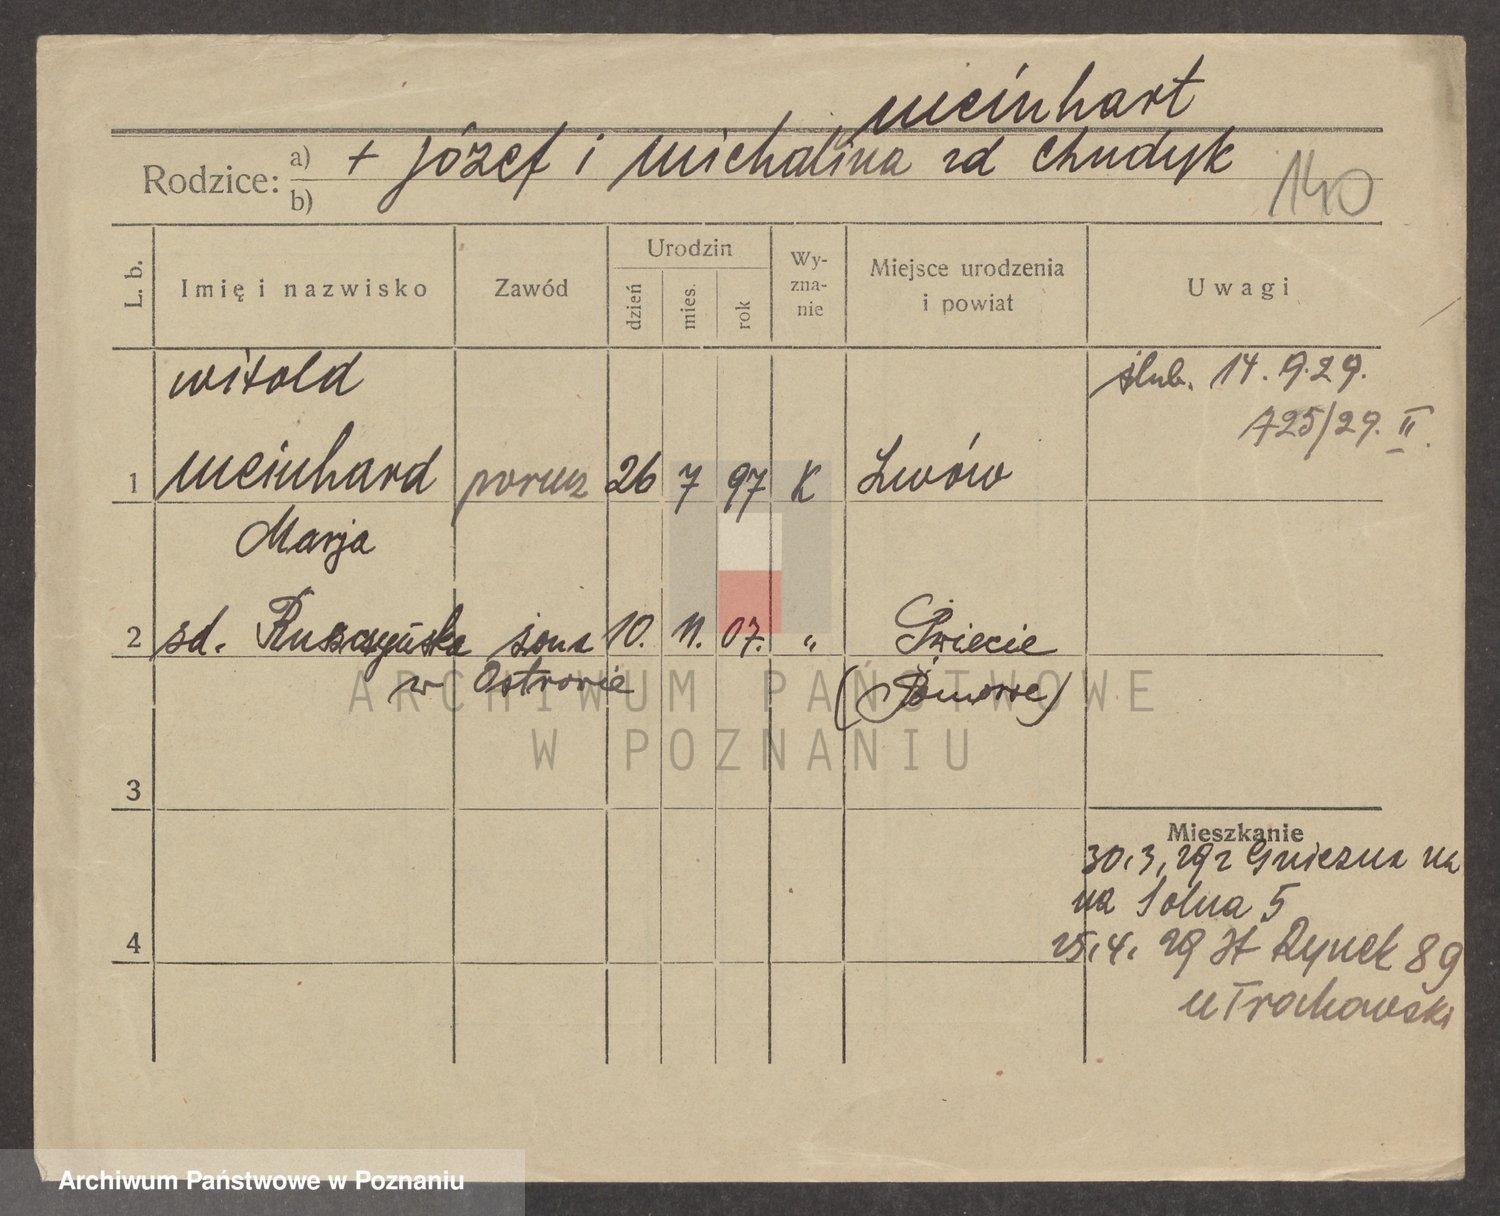 Meinhart
Rodzice: a) + Józef i Michalina zd Chudyk
b)
140
L. b.
Imię i nazwisko
Zawód
Urodzin
dzień
mies.
rok
Wy-
zna-
nie
Miejsce urodzenia
i powiat
Uwagi
Witold
ślub. 14.9.29.
A25/29. II.
1 Meinhard porucz 26 7 97 K Lwów
Marja
2 zd. Ruszczyńska żona 10. 11. 07. „ Świecie
w Ostrowie (Pomorze)
ARCHIWUM PAŃSTWOWE
W POZNANIU
3
Mieszkanie
30.3.29 z Gniezna na
na Solna 5
4
25.4.29 St Rynek 89
u Trochowski
Archiwum Państwowe w Poznaniu